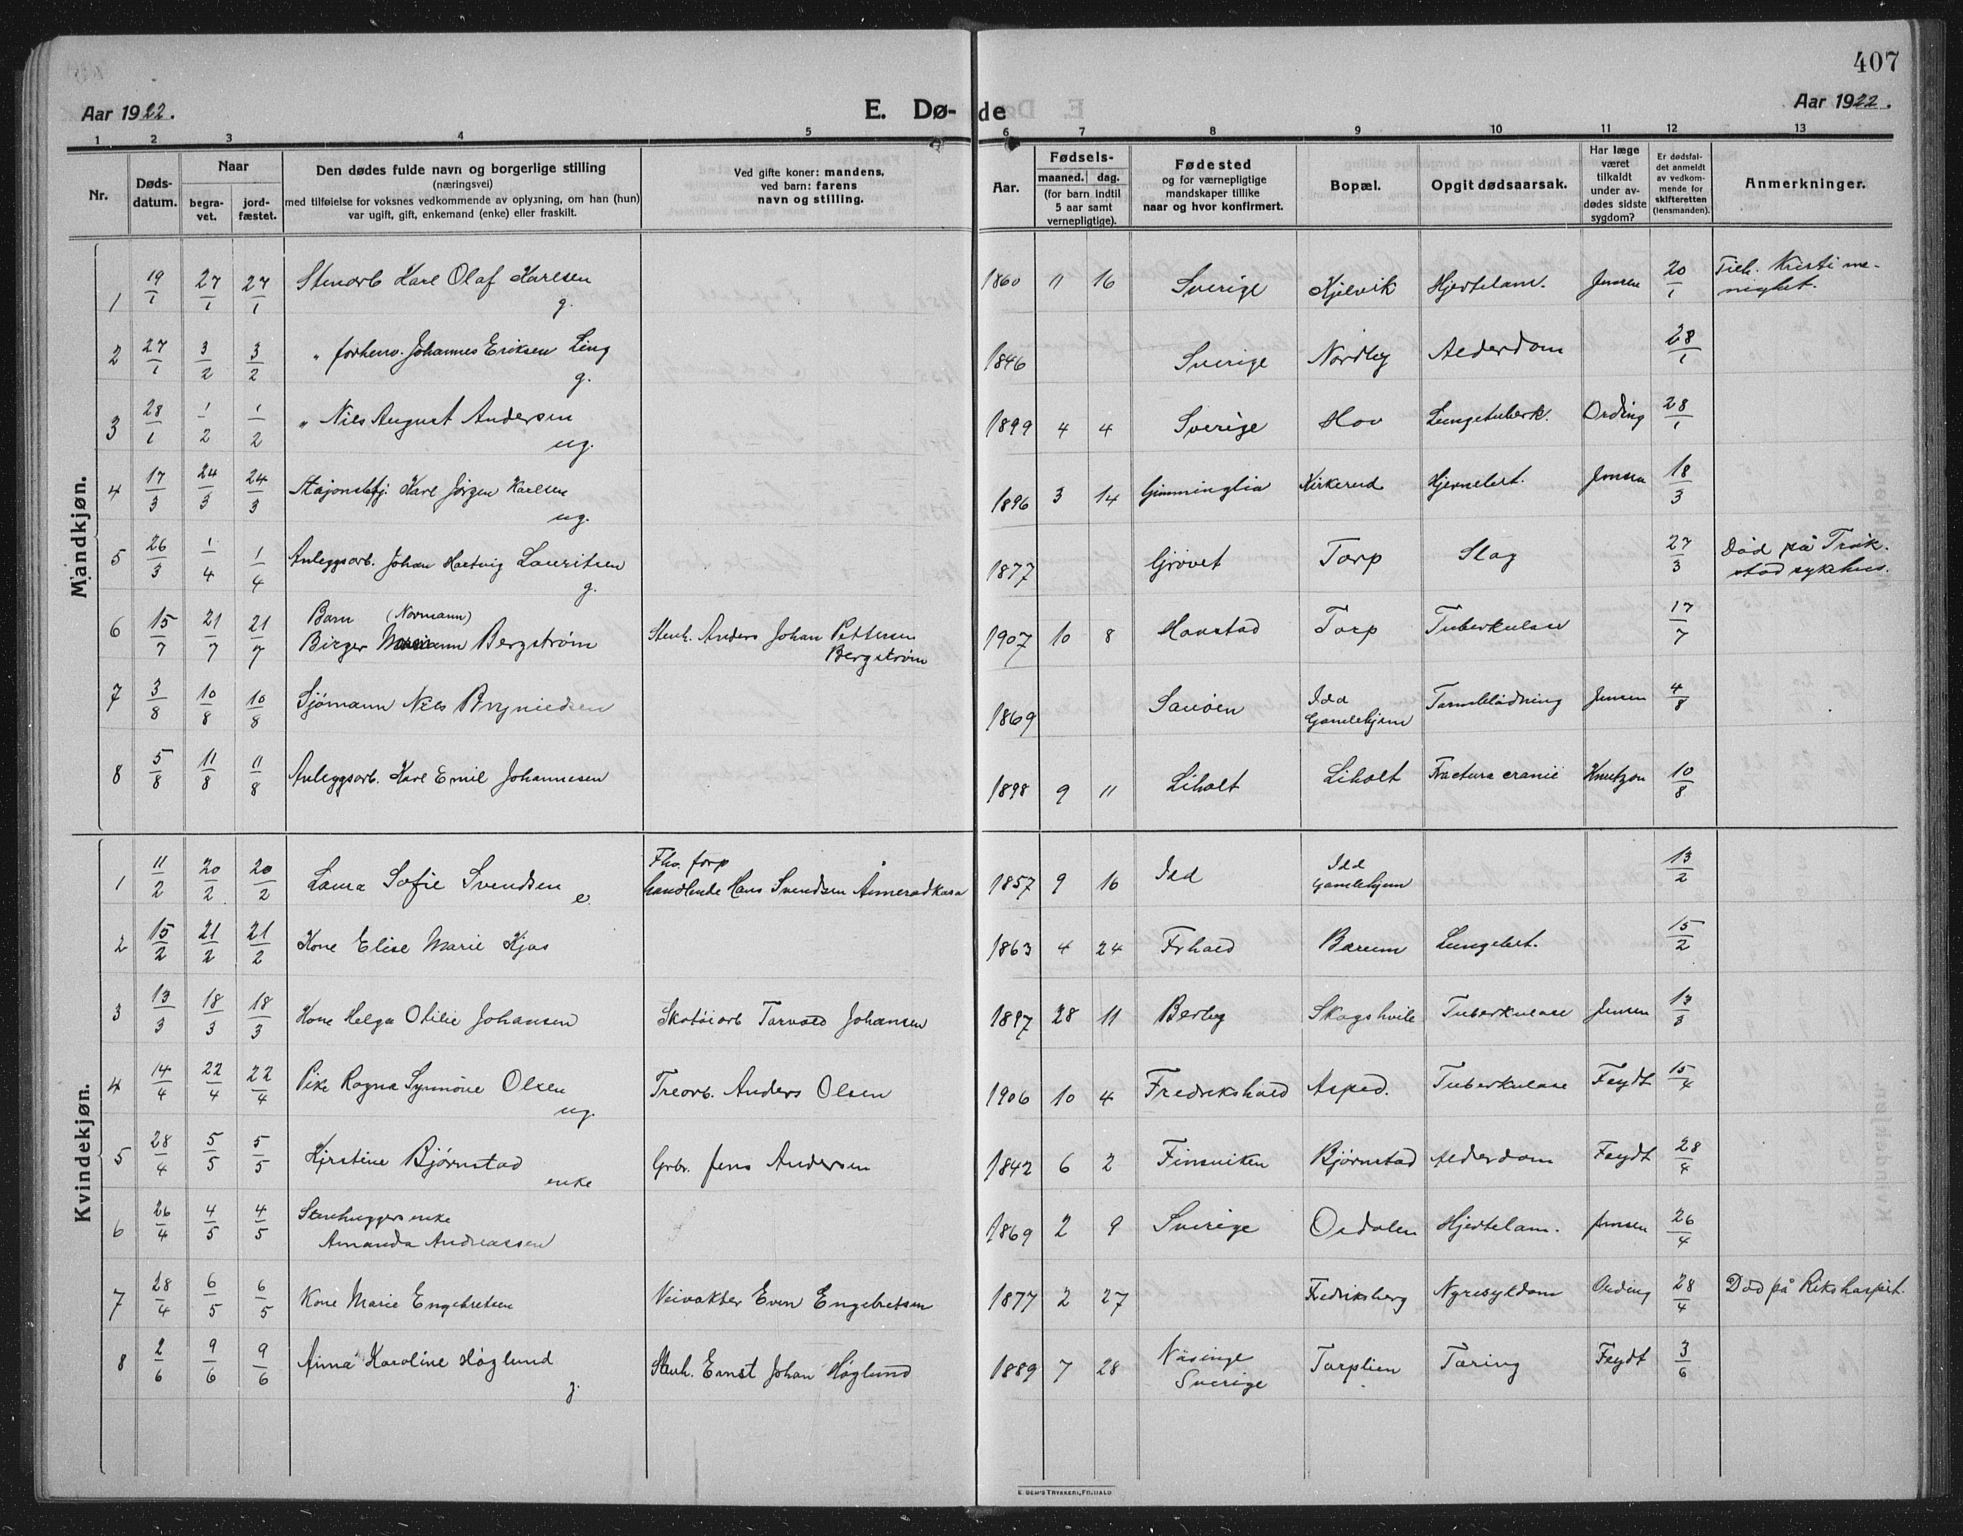 407
Aar 1922.
E. Dø-
de
Aar 1922.
1 2 3 4 5 6 7 8 9 10 11 12 13
Nr.
Døds-
datum.
Naar
begra-
vet.
jord-
fæstet.
Den dødes fulde navn og borgerlige stilling
(næringsvei)
med tilføielse for voksnes vedkommende av oplysning, om han (hun)
var ugift, gift, enkemand (enke) eller fraskilt.
Ved gifte koner: mandens,
ved barn: farens
navn og stilling.
Aar.
Fødsels-
maaned. dag.
(for barn indtil
5 aar samt
vernepligtige).
Fødested
og for værnepligtige
mandskaper tillike
naar og hvor konfirmert.
Bopæl.
Opgit dødsaarsak.
Har læge
været
tilkaldt
under av-
dødes sidste
sygdom?
Er dødsfal-
det anmeldt
av vedkom-
mende for
skifteretten
(lensmanden).
Anmerkninger.
Mandkjøn.
1 19/1 27/1 27/1 Stenarb Karl Olaf Karlsen g. 1860 11 16 Sverige Kjelvik Hjertelam. Jensen 20/1 Kristi me-
nighet.
2 27/1 3/2 3/2 " forhenv. Johannes Eriksen Ling g. 1846 Sverige Nordby Alderdom 28/1
3 28/1 1/2 1/2 " Nils August Andersen ug. 1899 4 4 Sverige Hov Lungetuberk. Ording 28/1
4 17/3 24/3 24/3 Karl Jørgen Karlsen ug. 1896 3 14 Kirkerud Hjernebet. Jensen 18/3
5 26/3 1/4 1/4 Anleggsarb. Johan Hartvig Lauritsen g. 1877 Grøvet Torp Slag 27/3 Død på Trøk-
stad sykehus.
6 15/7 21/7 21/7 Barn (Normann)
Birger Bergstrøm Stenh. Anders Johan Pettersen
Bergstrøm 1907 10 8 Torp Tuberkulose 17/7
7 3/8 10/8 10/8 Sjømann Nils Brynildsen 1869 Idd
Gamlehjem Tarmblødning Jensen 4/8
8 5/8 11/8 11/8 Anleggsarb. Karl Emil Johannesen 1898 9 11 Liholt Liholt Fractura cranii Knutzon 10/8
Kvindekjøn.
1 11/2 20/2 20/2 Laura Sofie Svendsen e. Fhv. torp
handlende Hans Svendsen 1857 9 16 Idd Idd
Gamlehjem 13/2
2 15/2 21/2 21/2 Kone Elise Marie Kjos 1863 4 24 Frhald Bærum Lungebet. 15/2
3 13/3 18/3 18/3 Kone Helga Otilie Johansen Skotøiarb Torvald Johansen 1897 28 11 Berby Skogshvile Tuberkulose Jensen 13/3
4 14/4 22/4 22/4 Pike Ragna Synnøve Olsen ug. Treorb. Anders Olsen 1906 10 4 Fredrikshald Asped. Tuberkulose Feydt 15/4
5 28/4 5/5 5/5 Kjrstine Bjørnstad enke Grbr. Jens Andersen 1842 6 2 Finsviken Bjørnstad Alderdom Feydt 28/4
6 26/4 4/5 4/5 Stenhuggers enke
Amanda Andreassen 1869 2 9 Sverige Ordalen Hjertelam. Jensen 26/4
7 28/4 6/5 6/5 Kone Marie Engebretsen Veivokter Even Engebretsen 1877 2 27 Fredriksberg Ording 28/4 Død på Rikshospit.
8 2/6 9/6 9/6 Anna Karoline Høglund g. Stenh. Ernst Johan Høglund 1889 7 28 Näsinge
Sverige Torplien Tæring Feydt 3/6
E. SEM'S TRYKKERI, FR.HALD